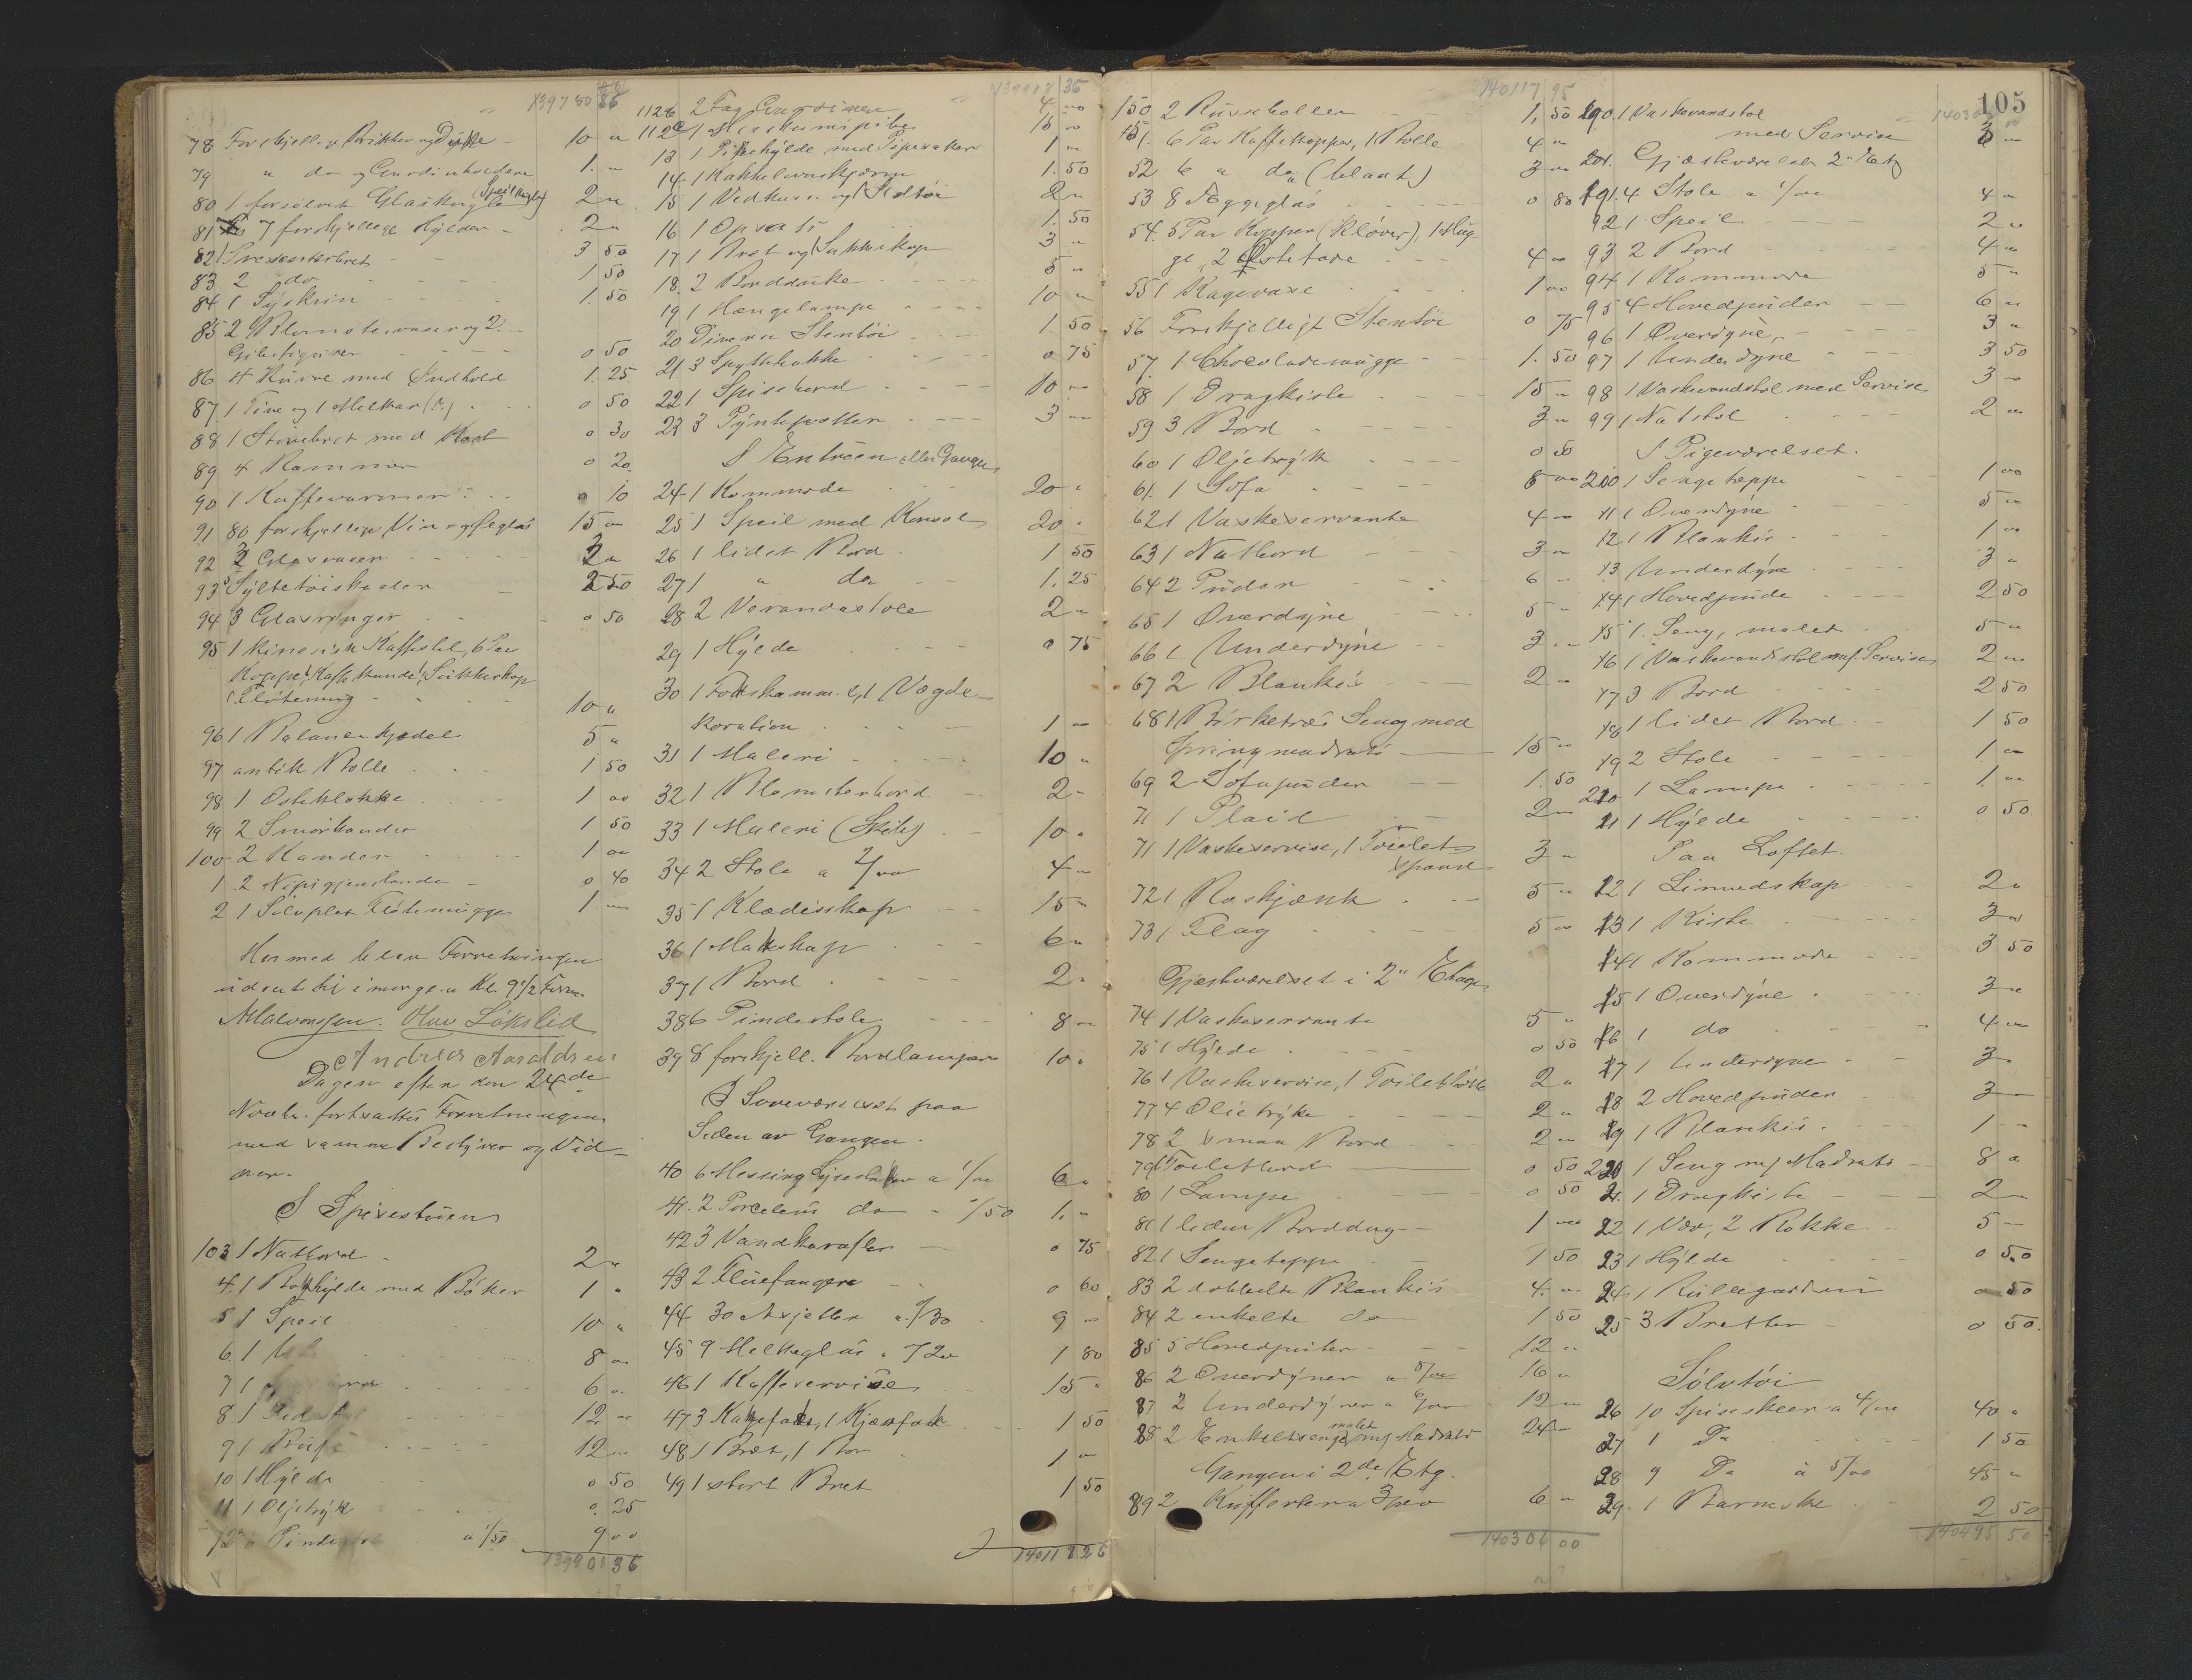 105
139780 86
78 Forskjell. Brikker og Duke 10 "
79 " do og Gardinholdere 1. "
80 1 forsølvet Glaskugle (Speilkugle) 2 "
81 7 forskjellige Hylder 2 "
82 1 Presenterbret 3 50
83 2 do 1 50
84 1 Syskrin 1. 50
85 2 Blomstervaser og 2
Gibsfigurer 0 50
86 4 Kurve med Indhold 1. 25
87 1 Tine og 1 Melkar (?) 0 50
88 1 Strilbret med Kost 0 30
89 4 Rammer 0 20
90 1 Kaffevarmer 0 10
91 80 forskjellige Vin og Ølglas 15 00
92 2 Glasvaser 2 "
93 Syltetøiskaaler 2 50
94 3 Glasringer 0 50
95 1 kinesisk Kaffestel, 6 Par
Kopper, 1 Kaffekande, 1 Sukkerkop
1 Fløtemug 10 "
96 1 Balancekjedel 5 "
97 antik Bolle 1 50
98 1 Osteklokke 1 00
99 2 Smørkander 1 50
100 2 Kander 1 00
1 2 Nipsgjenstande 0 40
2 1 Sølvplet Fløtemugge 1 "
Hermed blev Forretningen
udsat til imorgen Kl. 9 1/2 Form.
A Halvorsen. Olav Løkslid
Andreas Aaraldsen
Dagen efter den 24de
Novbr. fortsattes Forretningen
med samme Bestyrer og Vid-
ner.
I Spisestuen
103 1 Natbord 2 "
4. 1 Boghylde med Bøker 1 "
5 1 Speil 10 "
6. 1 8 "
7 1 6 "
8. 1 12 "
9 1 Buffe 12 "
10 1 Hylde 0 50
11 1 Oljetryk 0. 25
12 6 Pindestole a 1/50 9 00
139908 36
139918 36
112b 2 Fag Gardiner 4 00
112c 1 Merskumspibe 15 "
13 1 Pibehylde med Pipesaker 1 "
14. 1 Kakkelovnskjærm 1. 50
15 1 Vedkasse og Ildtøi 2 "
16 1 Opsats 1. 50
17 1 Bret og 1 Sukkerkop 3 "
18. 2 Bordduke 5 "
19 1 Hængelampe 10 "
20 Diverse Stentøi 1. 50
21. 3 Spyttebakke 0 75
22 1 Spisebord 10 "
23 3 Pyntepotter 3 "
I Entreen eller Gangen
24 1 Kommode 20 "
25 1 Speil med Konsol 20 "
26 1 lidet Bord 1 50
27 1 " do 1. 25
28 2 Verandastole 2 "
29 1 Hylde 0 75
30. 1 Fotskammel, 1 Vægde-
koration 1 "
31 1 Maleri 10 "
32 1 Blomsterbord 2 "
33 1 Maleri (Skib) 10 "
34 2 Stole a 2/00 4 "
35 1 Klædesskap 15 "
36 1 Matskap 6 "
37 1 Bord 2 "
38 6 Pindestole 8 "
39 8 forskjell. Bordlamper 10 "
I Soveværelset paa
Siden av Gangen.
40 6 Messing Lysestaker a 1/00 6 "
41. 2 Porcelæns do a /50 1. "
42 3 Vandkarafler 0 75
43 2 Fluefangere 0 60
44 30 Asjetter a /30 9 "
45 9 Melkeglas a /20 1 80
46 1 Kaffeservise 15 "
47 3 Kakefade, 1 Kjærfad 1 50
48 1 Bret, 1 Bor 1 "
49 1 stort Bret 1 50
140118 26
140117 95
150 2 Rusboller 1, 50
51. 6 Par Kaffekopper, 1 Bolle 4 "
52 6 " do (blaat) 3 "
53 8 Æggeglas 0 80
54. 5 Par Kopper (Kløver), 1 Mug-
ge, 2 Ostefade 4 00
55 1 Kagevase 1 00
56 Forskjelligt Stentøi 0 75
57. 1 Chocolademugge 1. 50
58 1 Dragkiste 15 "
59 3 Bord 3 "
60 1 Oljetryk 0 50
61. 1 Sofa 8 00
62 1 Vaskeservante 4 "
63 1 Natbord 3 "
64 2 Puder 6 "
65 1 Overdyne 5 "
66 1 Underdyne 3 "
67 2 Blankis 2 "
68 1 Birketræs Seng med
Springmadrats 15 "
69 2 Sofapuder 1. 50
70 1 Plaid 2 "
71 1 Vaskeservise, 1 Toilet-
spand 3 "
72 1 Roskjænk 5 "
73 1 Flag 5 "
Gjesteværelset i 2den Etage
74 1 Vaskeservante 5 "
75 1 Hylde 0 50
76 1 Vaskeservise, 1 Toiletbøtte 2 "
77 4 Olietryk 2 "
78 2 smaa Bord 2 "
79 1 Toiletbord 0 50
80 1 Lampe 0 50
81 1 liden Borddug 1 00
82 1 Sengeteppe 1 50
83 2 dobbelte Blankis 4. "
84 2 enkelte do 1 50
85 5 Hovedputer 12 "
86 2 Overdyner a 8/00 16 "
87 2 Underdyner a 6/00 12 "
88 2 Enkeltsenge, malet m/ Madrats 24 "
Gangen i 2den Etg.
89 2 Kufferter a 3/00 6 "
140306 00
190. 1 Vaskevandstol
med Servise 3 "
201. Gjesteværelset 2den Etg
191. 4 Stole a 1/00 4 "
92 1 Speil 2 "
93 2 Bord 4 "
94 1 Kommode 5 "
95 4 Hovedpuder 6 "
96 1 Overdyne, 3 "
97 1 Underdyne 3 50
98 1 Vaskevandstol med Servise 3 "
99 1 Natstol 2 "
I Pigeværelset.
200 1 Sengeteppe 1 00
11 1 Overdyne 5 "
12 1 Blankis 1 00
13 1 Underdyne 3 "
14 1 Hovedpude 2 50
15 1 Seng, malet 5 "
16 1 Vaskevandstol m/. Servise 2 "
17 3 Bord 2 50
18 1 lidet Bord 1 50
19 2 Stole 1 "
210 1 Lampe 1. "
11 1 Hylde 0 50.
Paa Loftet
12 1 Linnedskap 2 "
13 1 Kiste 3 "
14 1 Kommode 3 50
15 1 Overdyne 3 "
16 1 do 4 "
17 1 Underdyne 3 "
18 2 Hovedpuder 3
19 1 Blankis 1 "
220 1 Seng m/ Madrats 8 "
21. 1 Dragkiste 2
22 1 Væv, 2 Rokke 5 "
23 1 Hylde 0 50
24 1 Rullegardin 0 50
25 3 Bretter 0 50.
Sølvtøi
26 10 Spiseskeer a 4/00 40 "
27 1 Do 1 50
28 9 Do a 5/00 45 "
29. 1 Barneske 2 50
140495 50